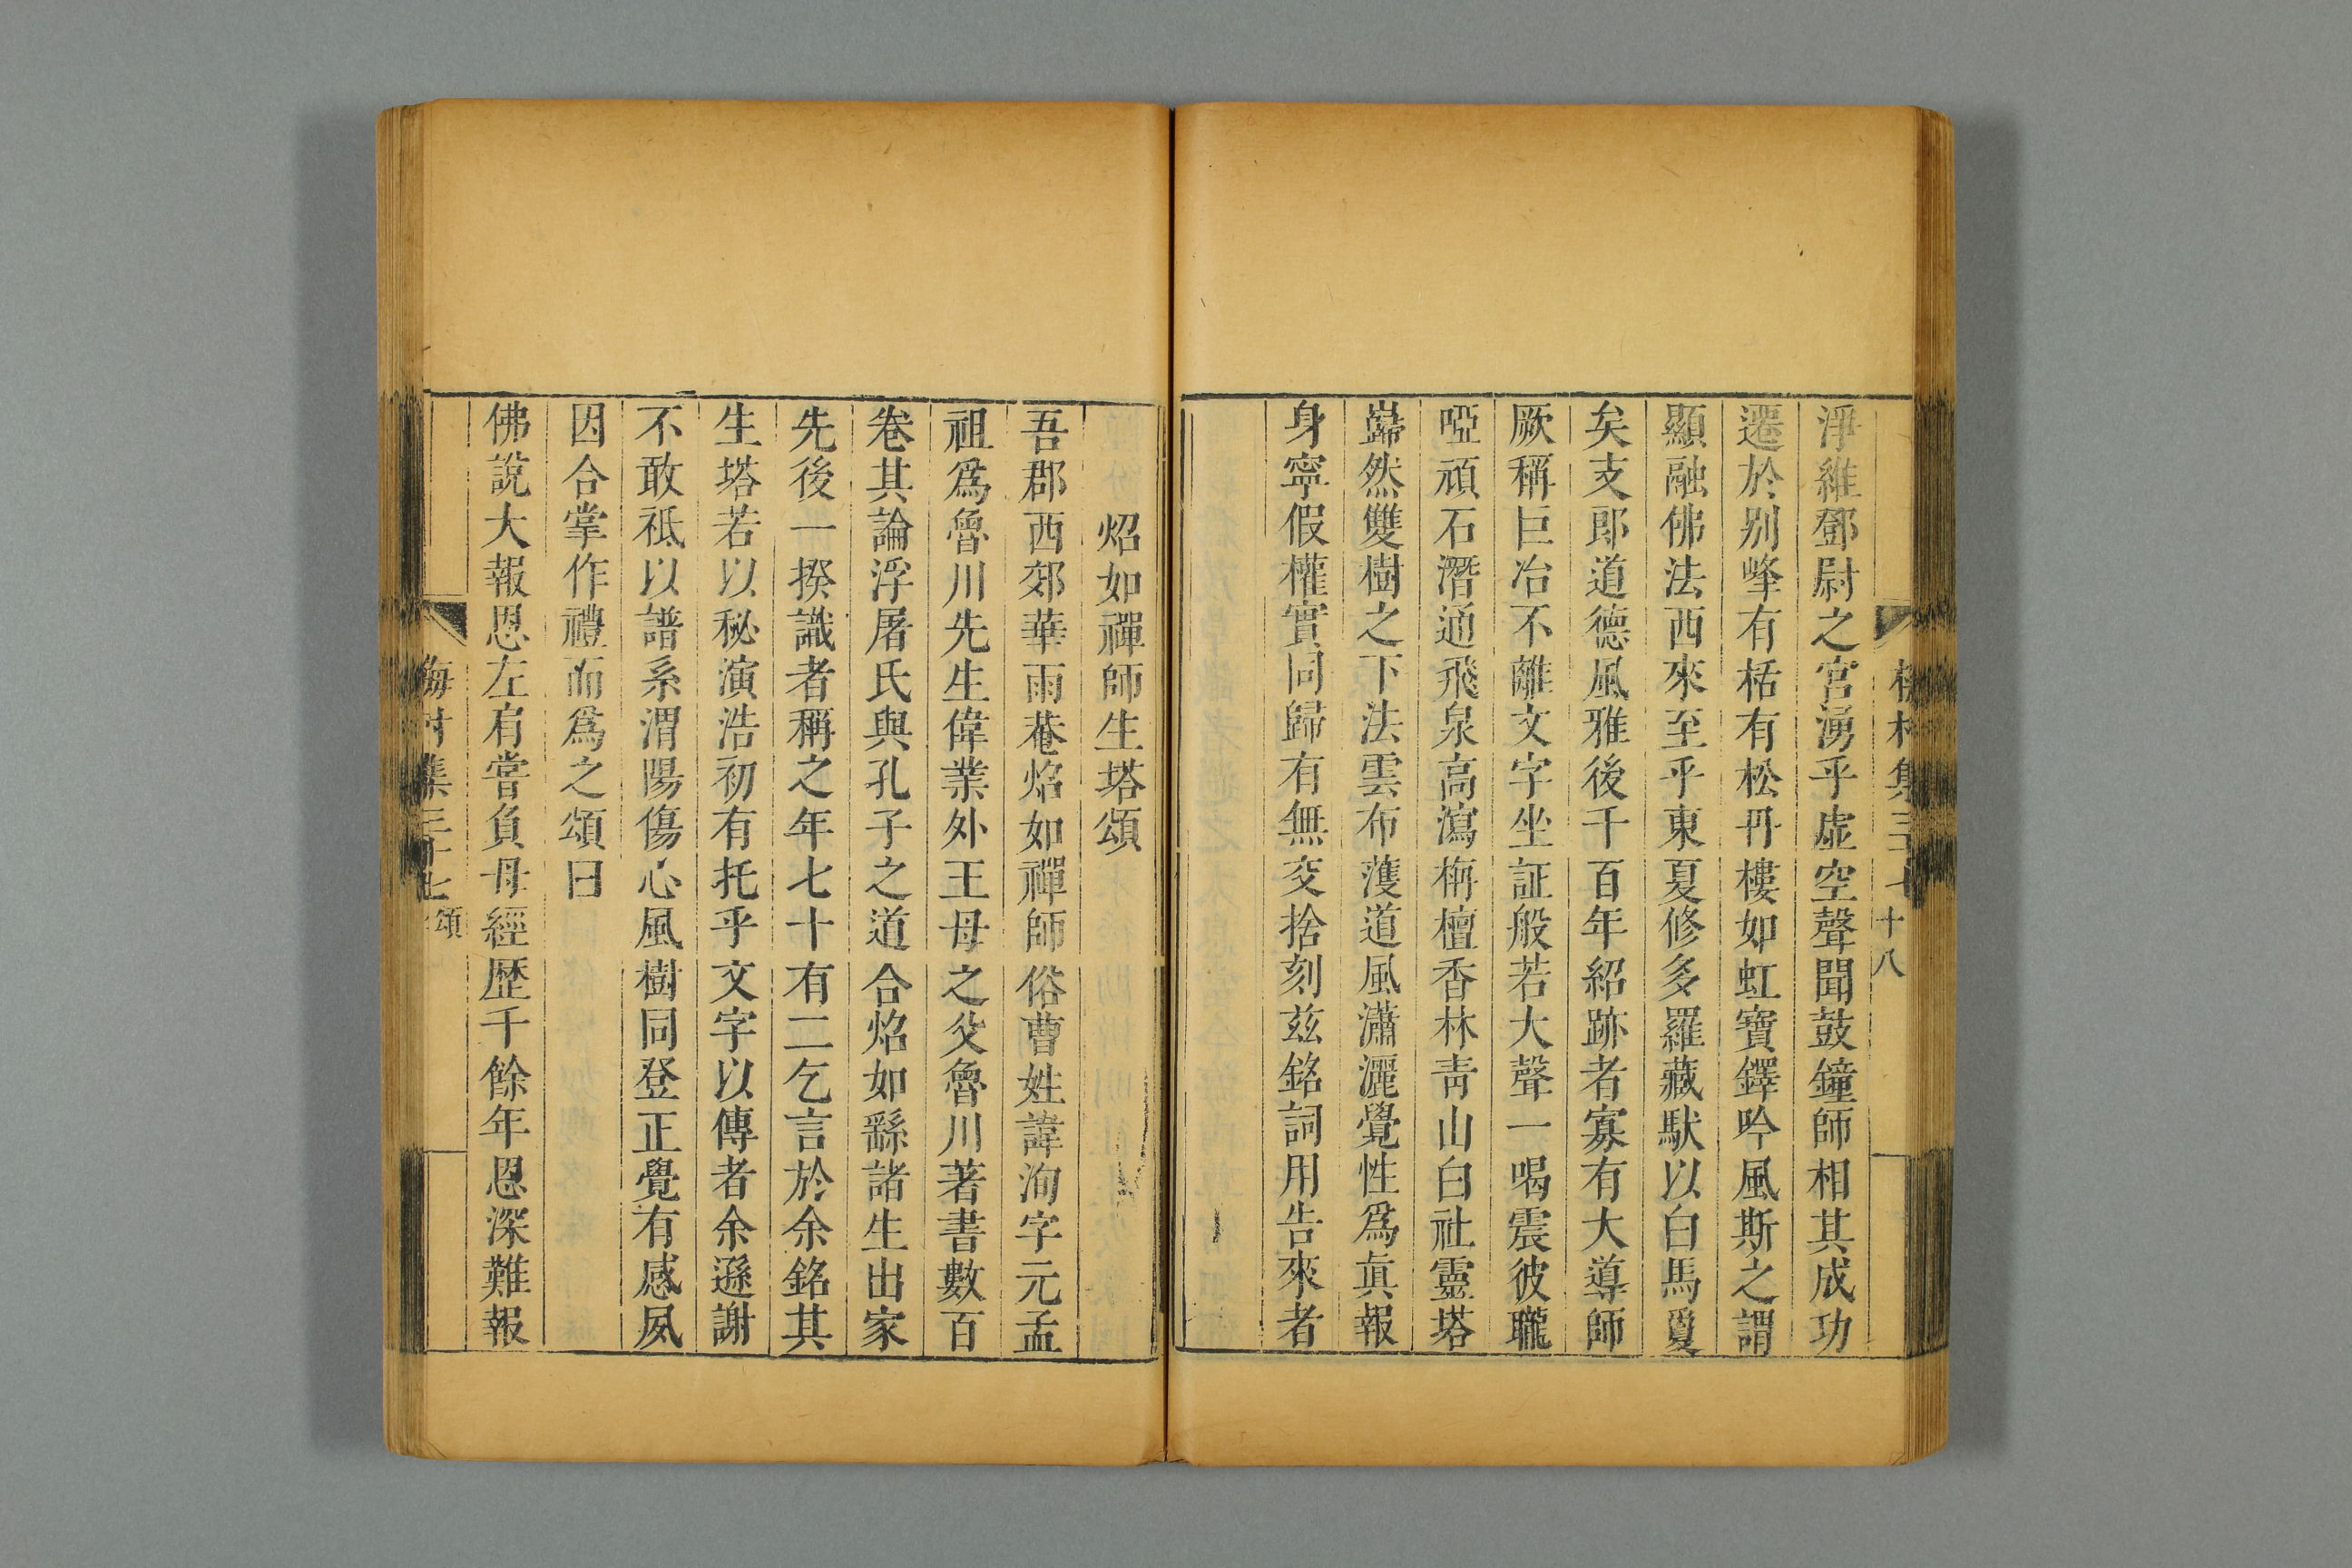 十八
淨維鄧尉之宮湧乎虛空聲聞鼓鐘師相其成功
遷於別峰有栝有松丹樓如虹寶鐸吟風斯之謂
顯融佛法西來至乎東夏修多羅藏馱以白馬夐
矣支郎道德風雅後千百年紹跡者寡有大導師
厥稱巨冶不離文字坐証般若大聲一喝震彼聾
啞頑石潛通飛泉高瀉栴檀香林靑山白社靈塔
巋然雙樹之下法雲布濩道風瀟灑覺性爲眞報
身寧假權實同歸有無交捨刻兹銘詞用告來者
炤如禪師生塔頌
吾郡西郊華雨菴焰如禪師俗曹姓諱洵字元孟
祖爲魯川先生偉業外王母之父魯川著書數百
卷其論浮屠氏與孔子之道合焰如繇諸生出家
先後一揆識者稱之年七十有二乞言於余銘其
生塔若以秘演浩初有托乎文字以傳者余遜謝
不敢祗以譜系渭陽傷心風樹同登正覺有感夙
因合掌作禮而爲之頌曰
佛說大報恩左肩嘗負母經歴千餘年恩深難報
梅村集三十七 頌